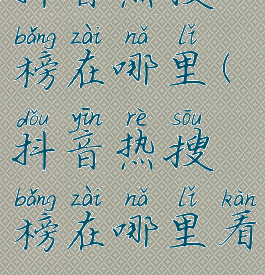 bǎng zài nǎ lǐ
榜在哪里(
dǒu yīn rè sōu
抖音热搜
bǎng zài nǎ lǐ kàn
榜在哪里看